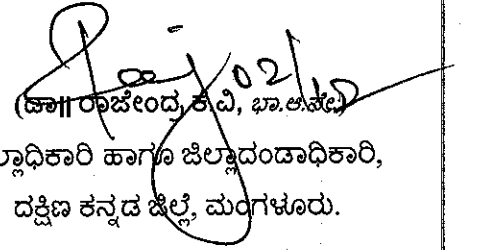 02/12
(ಡಾ|| ರಾಜೇಂದ್ರ ಕೆ ವಿ, ಭಾ.ಆ.ಸೇ)
ಲ್ಲಾಧಿಕಾರಿ ಹಾಗೂ ಜಿಲ್ಲಾದಂಡಾಧಿಕಾರಿ,
ದಕ್ಷಿಣ ಕನ್ನಡ ಜಿಲ್ಲೆ, ಮಂಗಳೂರು.